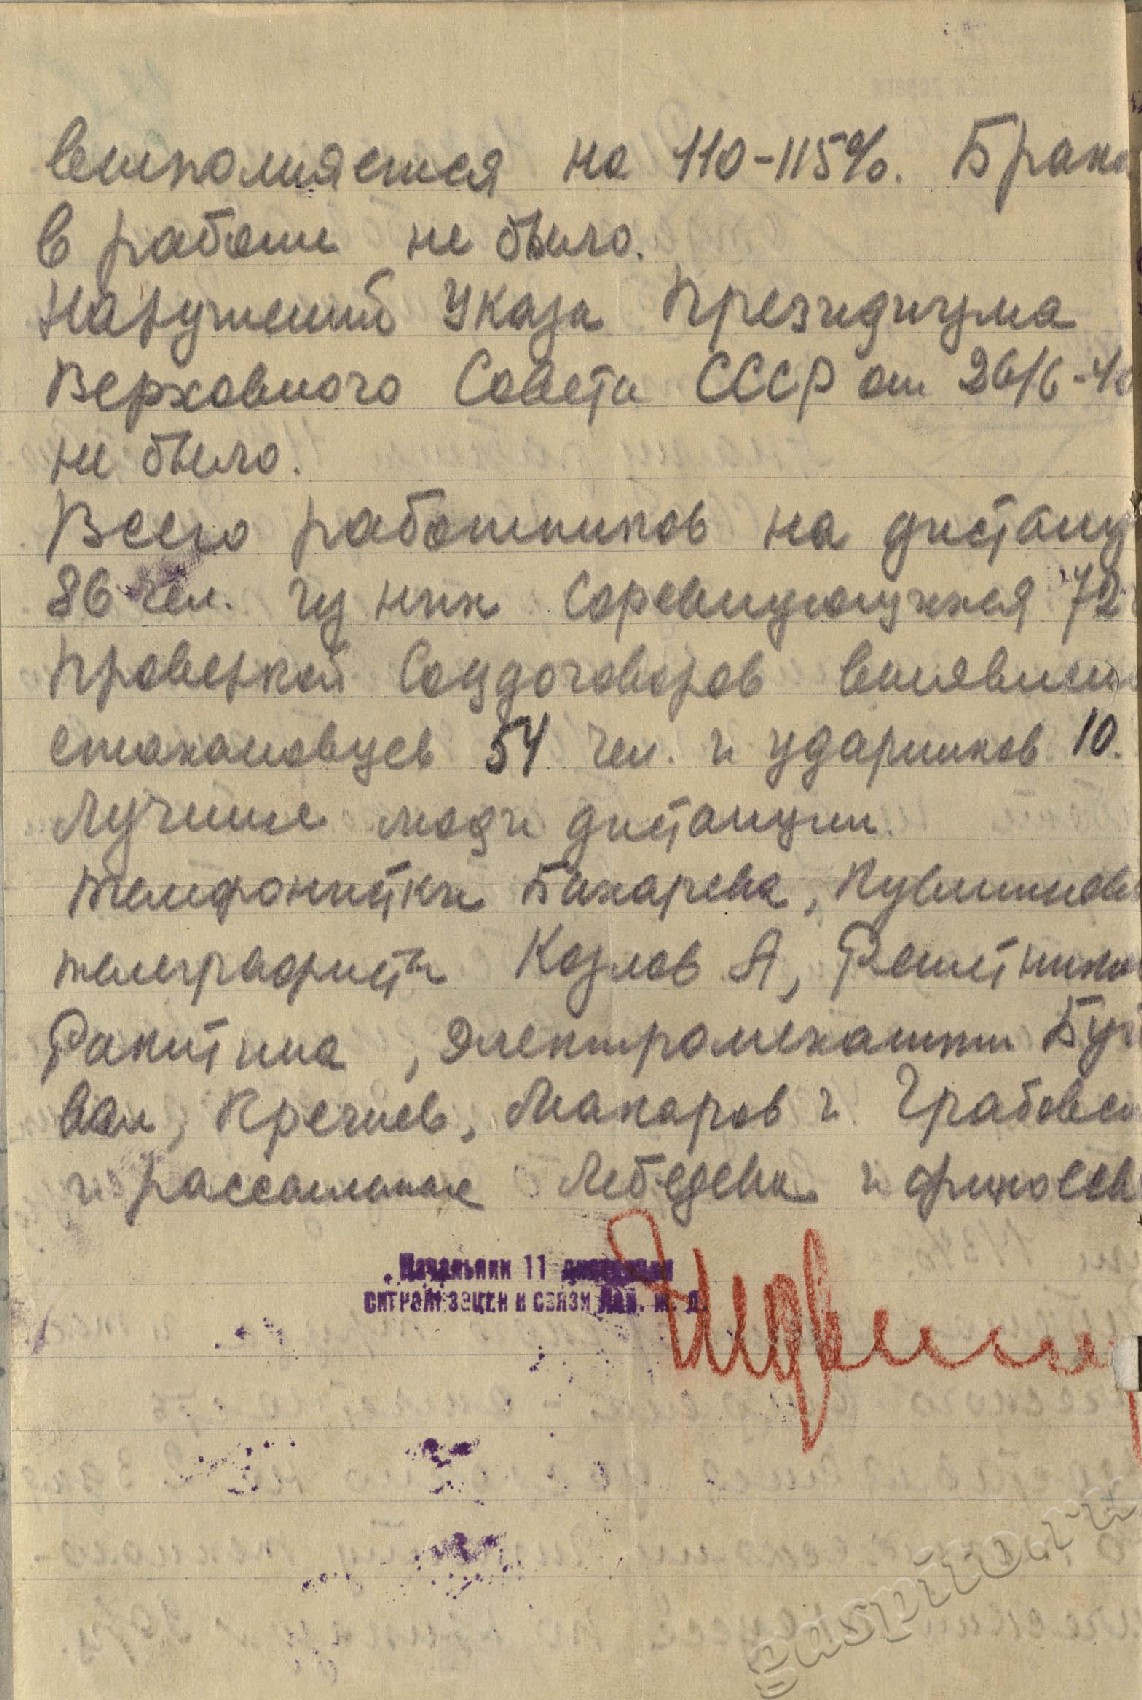 выполняется на 110-115%. Брака
в работе не было.
Нарушений Указа Президиума
Верховного Совета СССР от 26/6-40
не было.
Всего работников на дистанц
86 чел. из них соревнующихся 72
Проверкой Соцдоговоров выявлен
стахановцев 54 чел. и ударников 10.
Лучшие люди дистанции
телефонистки Бахарева,
телеграфисты Козлов А, Решетников
Ракитина, электромеханики
Кречнев, Макаров и Грабовск
и рассыльные Лебедева и
Начальник 11 дистанции
сигнализации и связи Лен. ж. д.
gaspiito.ru